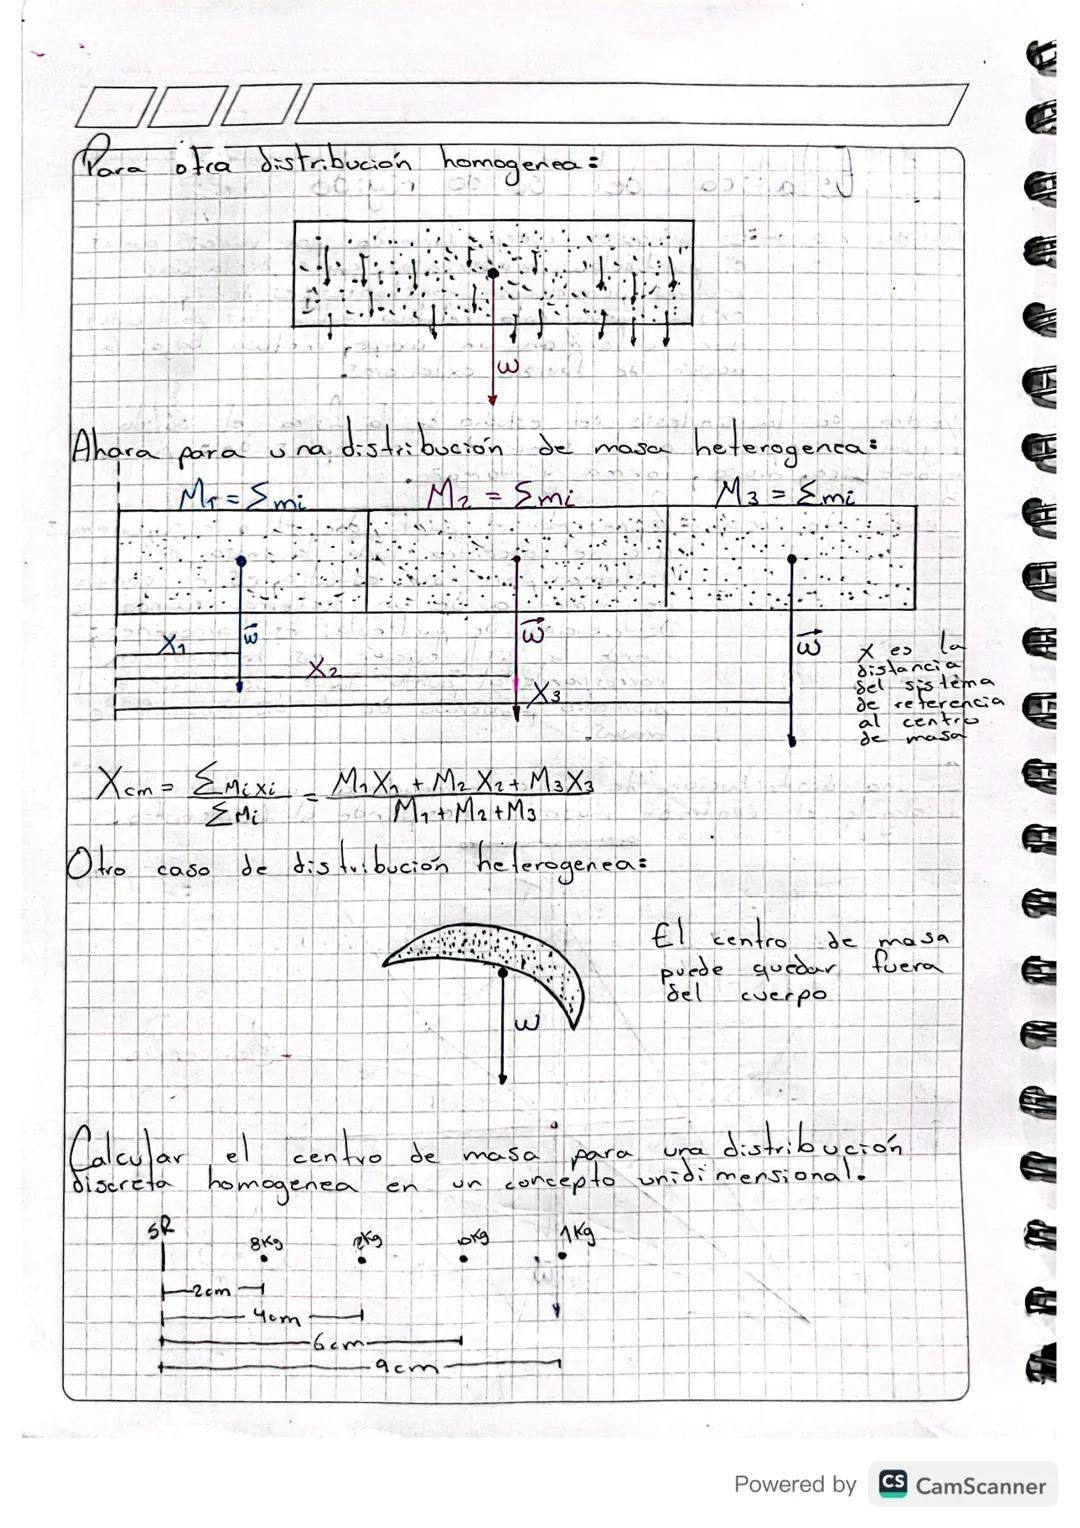 Para otra distribución homogenea:
w
Ahora para una distribución de masa heterogenea:
M1 = Σmi M2 = Σmi M3 = Σmi
w⃗ w⃗ w⃗
X1
X2
X3
X es la
distancia
del sistema
de referencia
al centro
de masa
Xcm = ΣMiXi / ΣMi = M1X1 + M2X2 + M3X3 / M1+M2+M3
Otro caso de distribución heterogenea:
El centro de masa
puede quedar fuera
del cuerpo
w
Calcular el centro de masa para una distribución
discreta homogenea en un concepto unidimensional.
SR
8Kg 1Kg
2cm
4cm
6cm
9cm
Powered by CS CamScanner